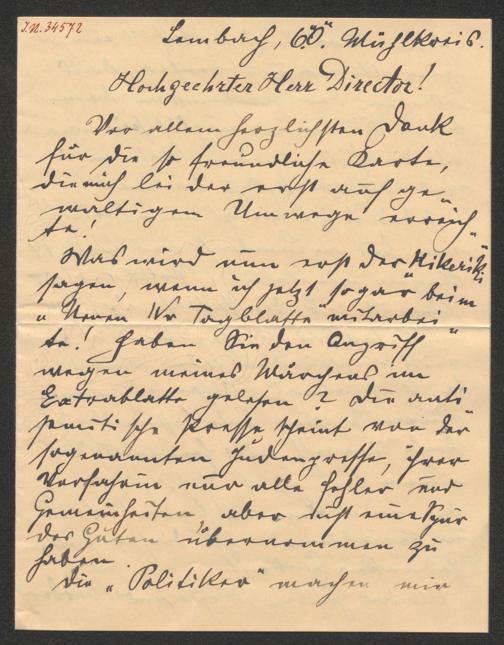 J.N. 34572
Lembach, OÖ. Mühlkreis.
Hochgeehrter Herr Director!
Vor allem herzlichsten Dank
für die so freundliche Karte,
die mich bei der erst auf ge-
waltigem Umwege erreich-
te!
Was wird nun erst der "Kikeriki"
sagen, wenn ich jetzt sogar beim
"Neuen Wr Tagblatte" mitarbei-
te! Haben Sie den Angriff
wegen meines Märchens im
Extrablatte gelesen? Die anti
semitische Presse scheint von der
sogenannten Judenpresse, ihrer
Vorfahrin nur alle Fehler und
Gemeinheiten, aber nicht eine Spur
des Guten übernommen zu
haben.
Die "Politiker" machen mir